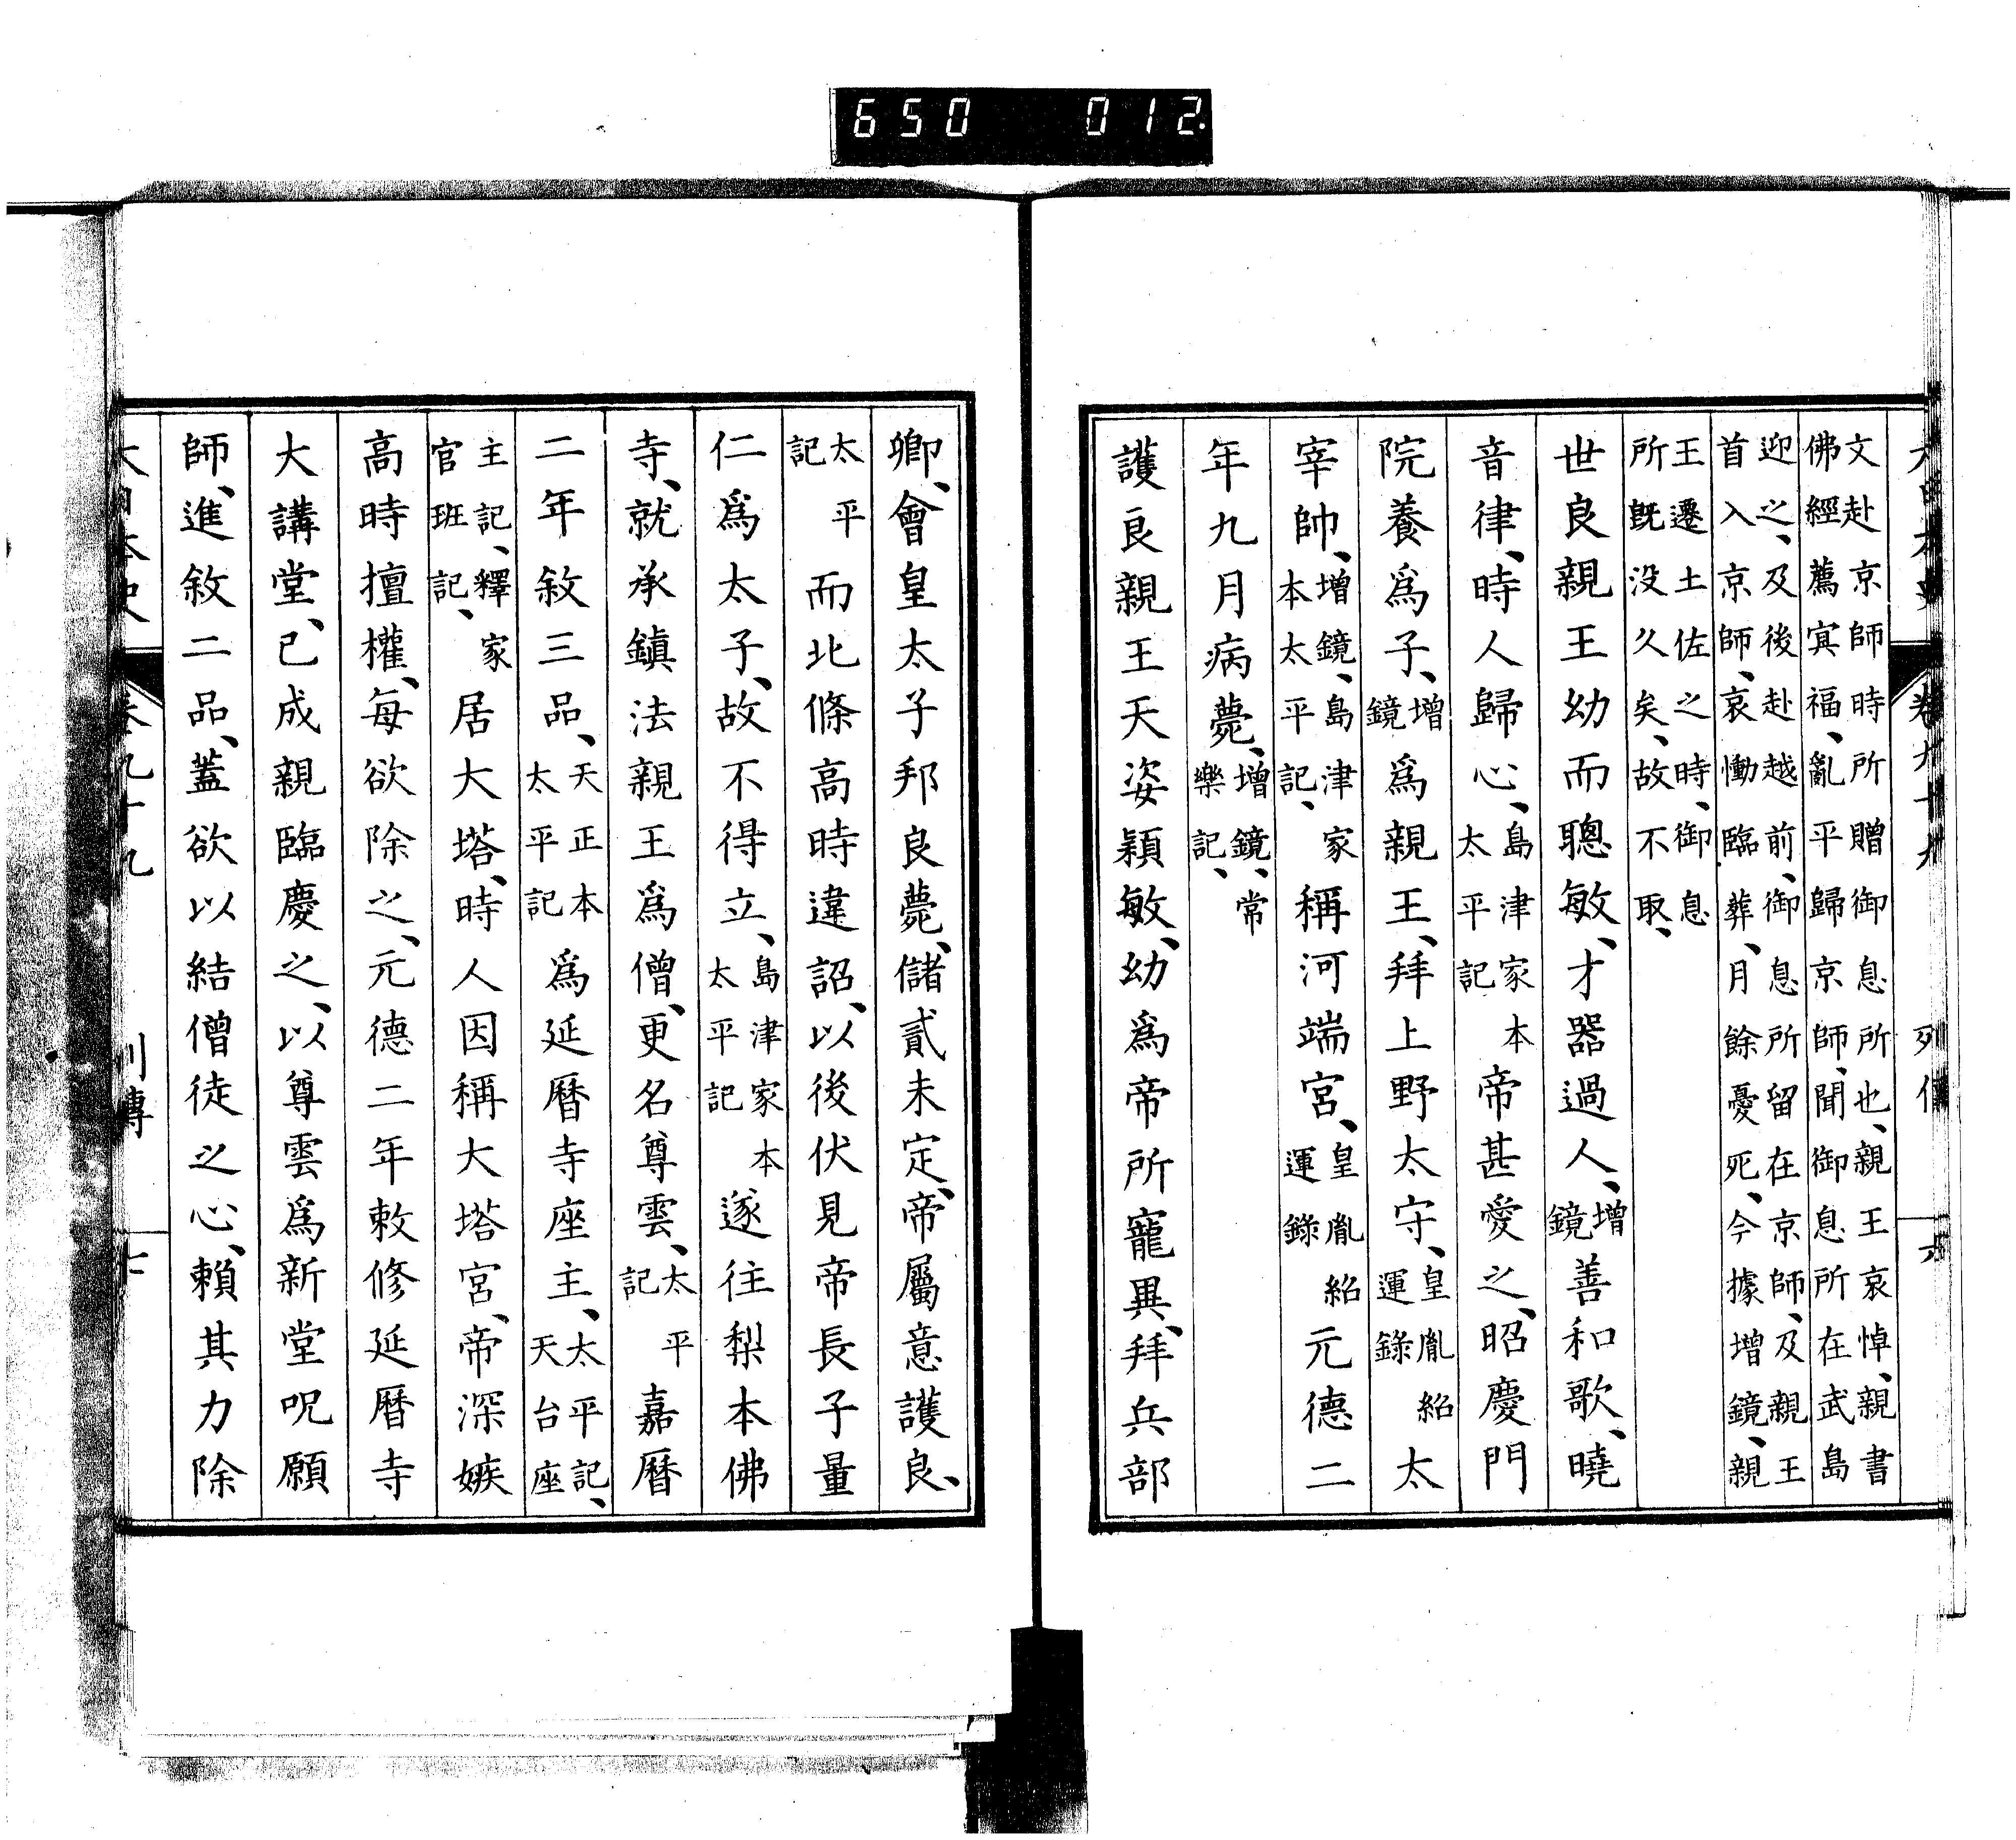 650 012
大日本史 卷九十九 列傳 六
文赴京師時所贈御息所也、親王哀悼、親書
佛經薦冥福、亂平歸京師、聞御息所在武島
迎之、及後赴越前、御息所留在京師、及親王
首入京師、哀慟臨葬、月餘憂死、今據增鏡、親
王遷土佐之時、御息
所既没久矣、故不取、
世良親王幼而聰敏、才器過人、增鏡善和歌、曉
音律、時人歸心、島津家本太平記帝甚愛之、昭慶門
院養爲子、增鏡爲親王、拜上野太守、皇胤紹運錄太
宰帥、增鏡、島津家本太平記、稱河端宮、皇胤紹運錄元德二
年九月病薨、增鏡、常樂記、
護良親王天姿穎敏、幼爲帝所寵異、拜兵部
卿、會皇太子邦良薨、儲貳未定、帝屬意護良、
太平記而北條高時違詔、以後伏見帝長子量
仁爲太子、故不得立、島津家本太平記遂往梨本佛
寺、就承鎭法親王爲僧、更名尊雲、太平記嘉曆
二年敘三品、天正本太平記爲延曆寺座主、太平記、天台座
主記、釋家官班記、居大塔、時人因稱大塔宮、帝深嫉
高時擅權、每欲除之、元德二年敕修延曆寺
大講堂、已成親臨慶之、以尊雲爲新堂呪願
師、進敘二品、蓋欲以結僧徒之心、賴其力除
大日本史 卷九十九 列傳 七